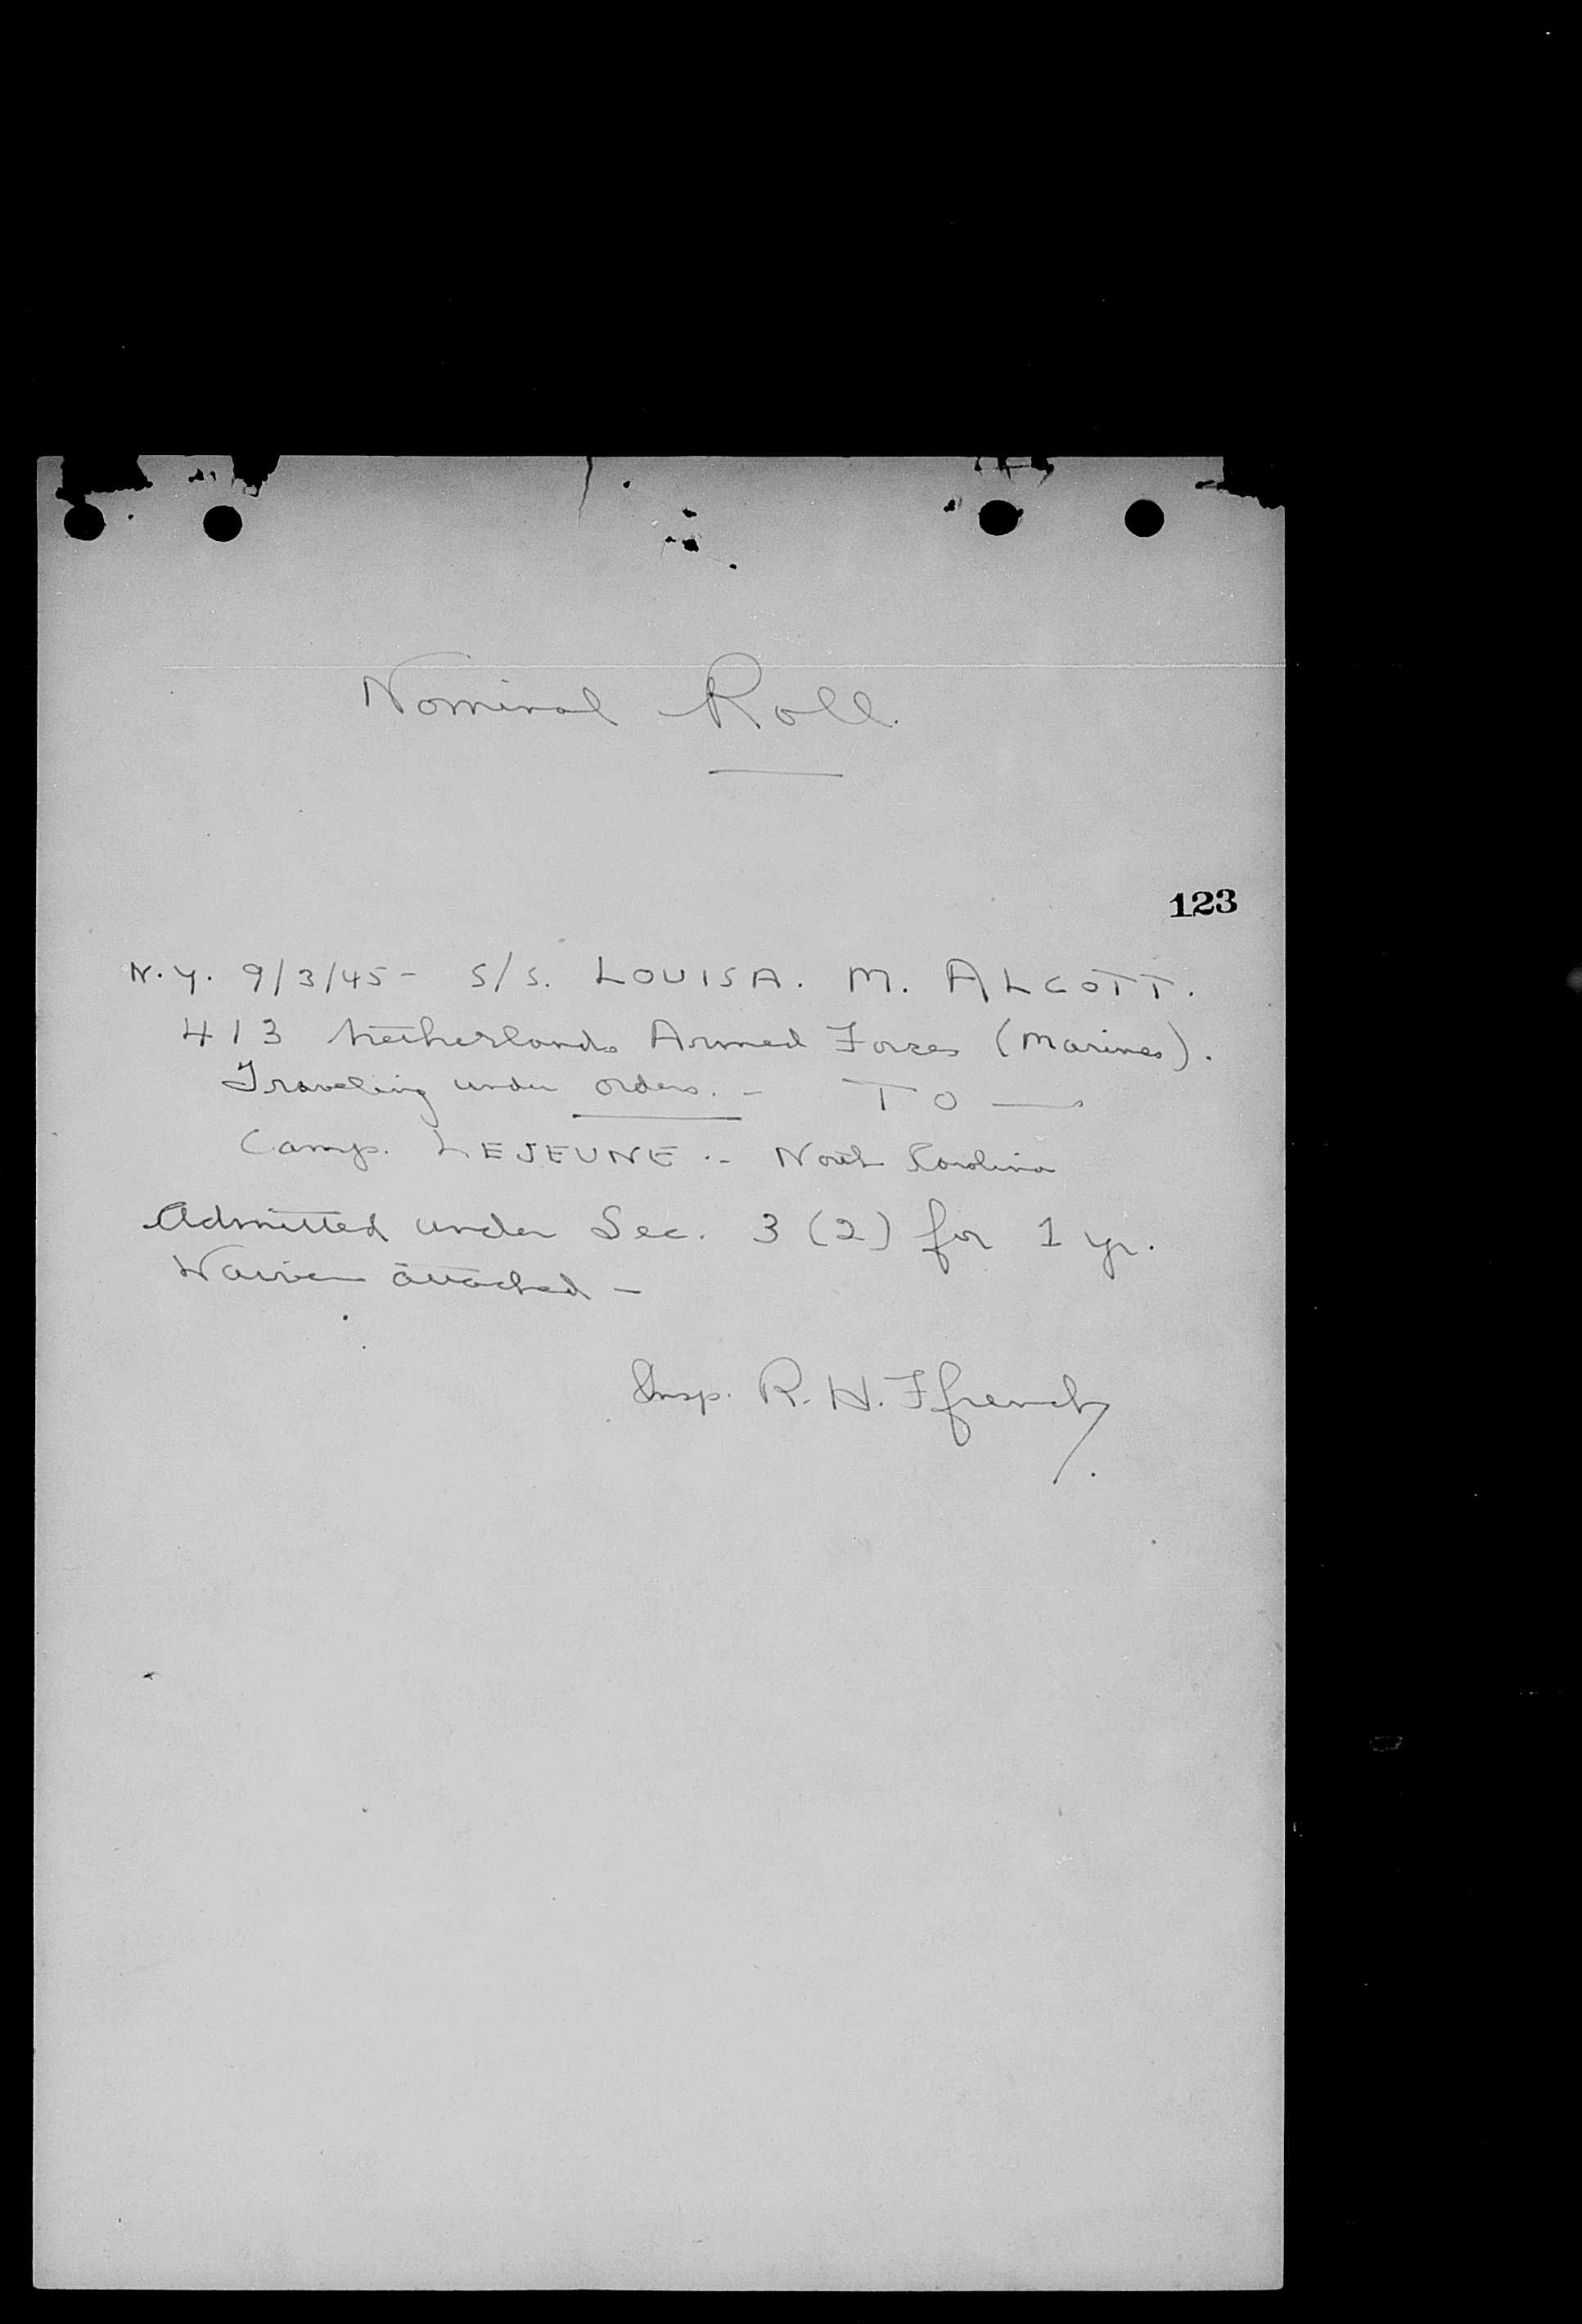 Nominal Roll.
123
N.Y. 9/3/45 - S/S. LOUISA. M. ALCOTT.
413 Netherlands Armed Forces (Marines).
Traveling under orders. - TO —
Camp. LEJEUNE -- North Carolina
Admitted under Sec. 3 (2) for 1 yr.
Waiver attached -
Insp. R. H. Ffrench